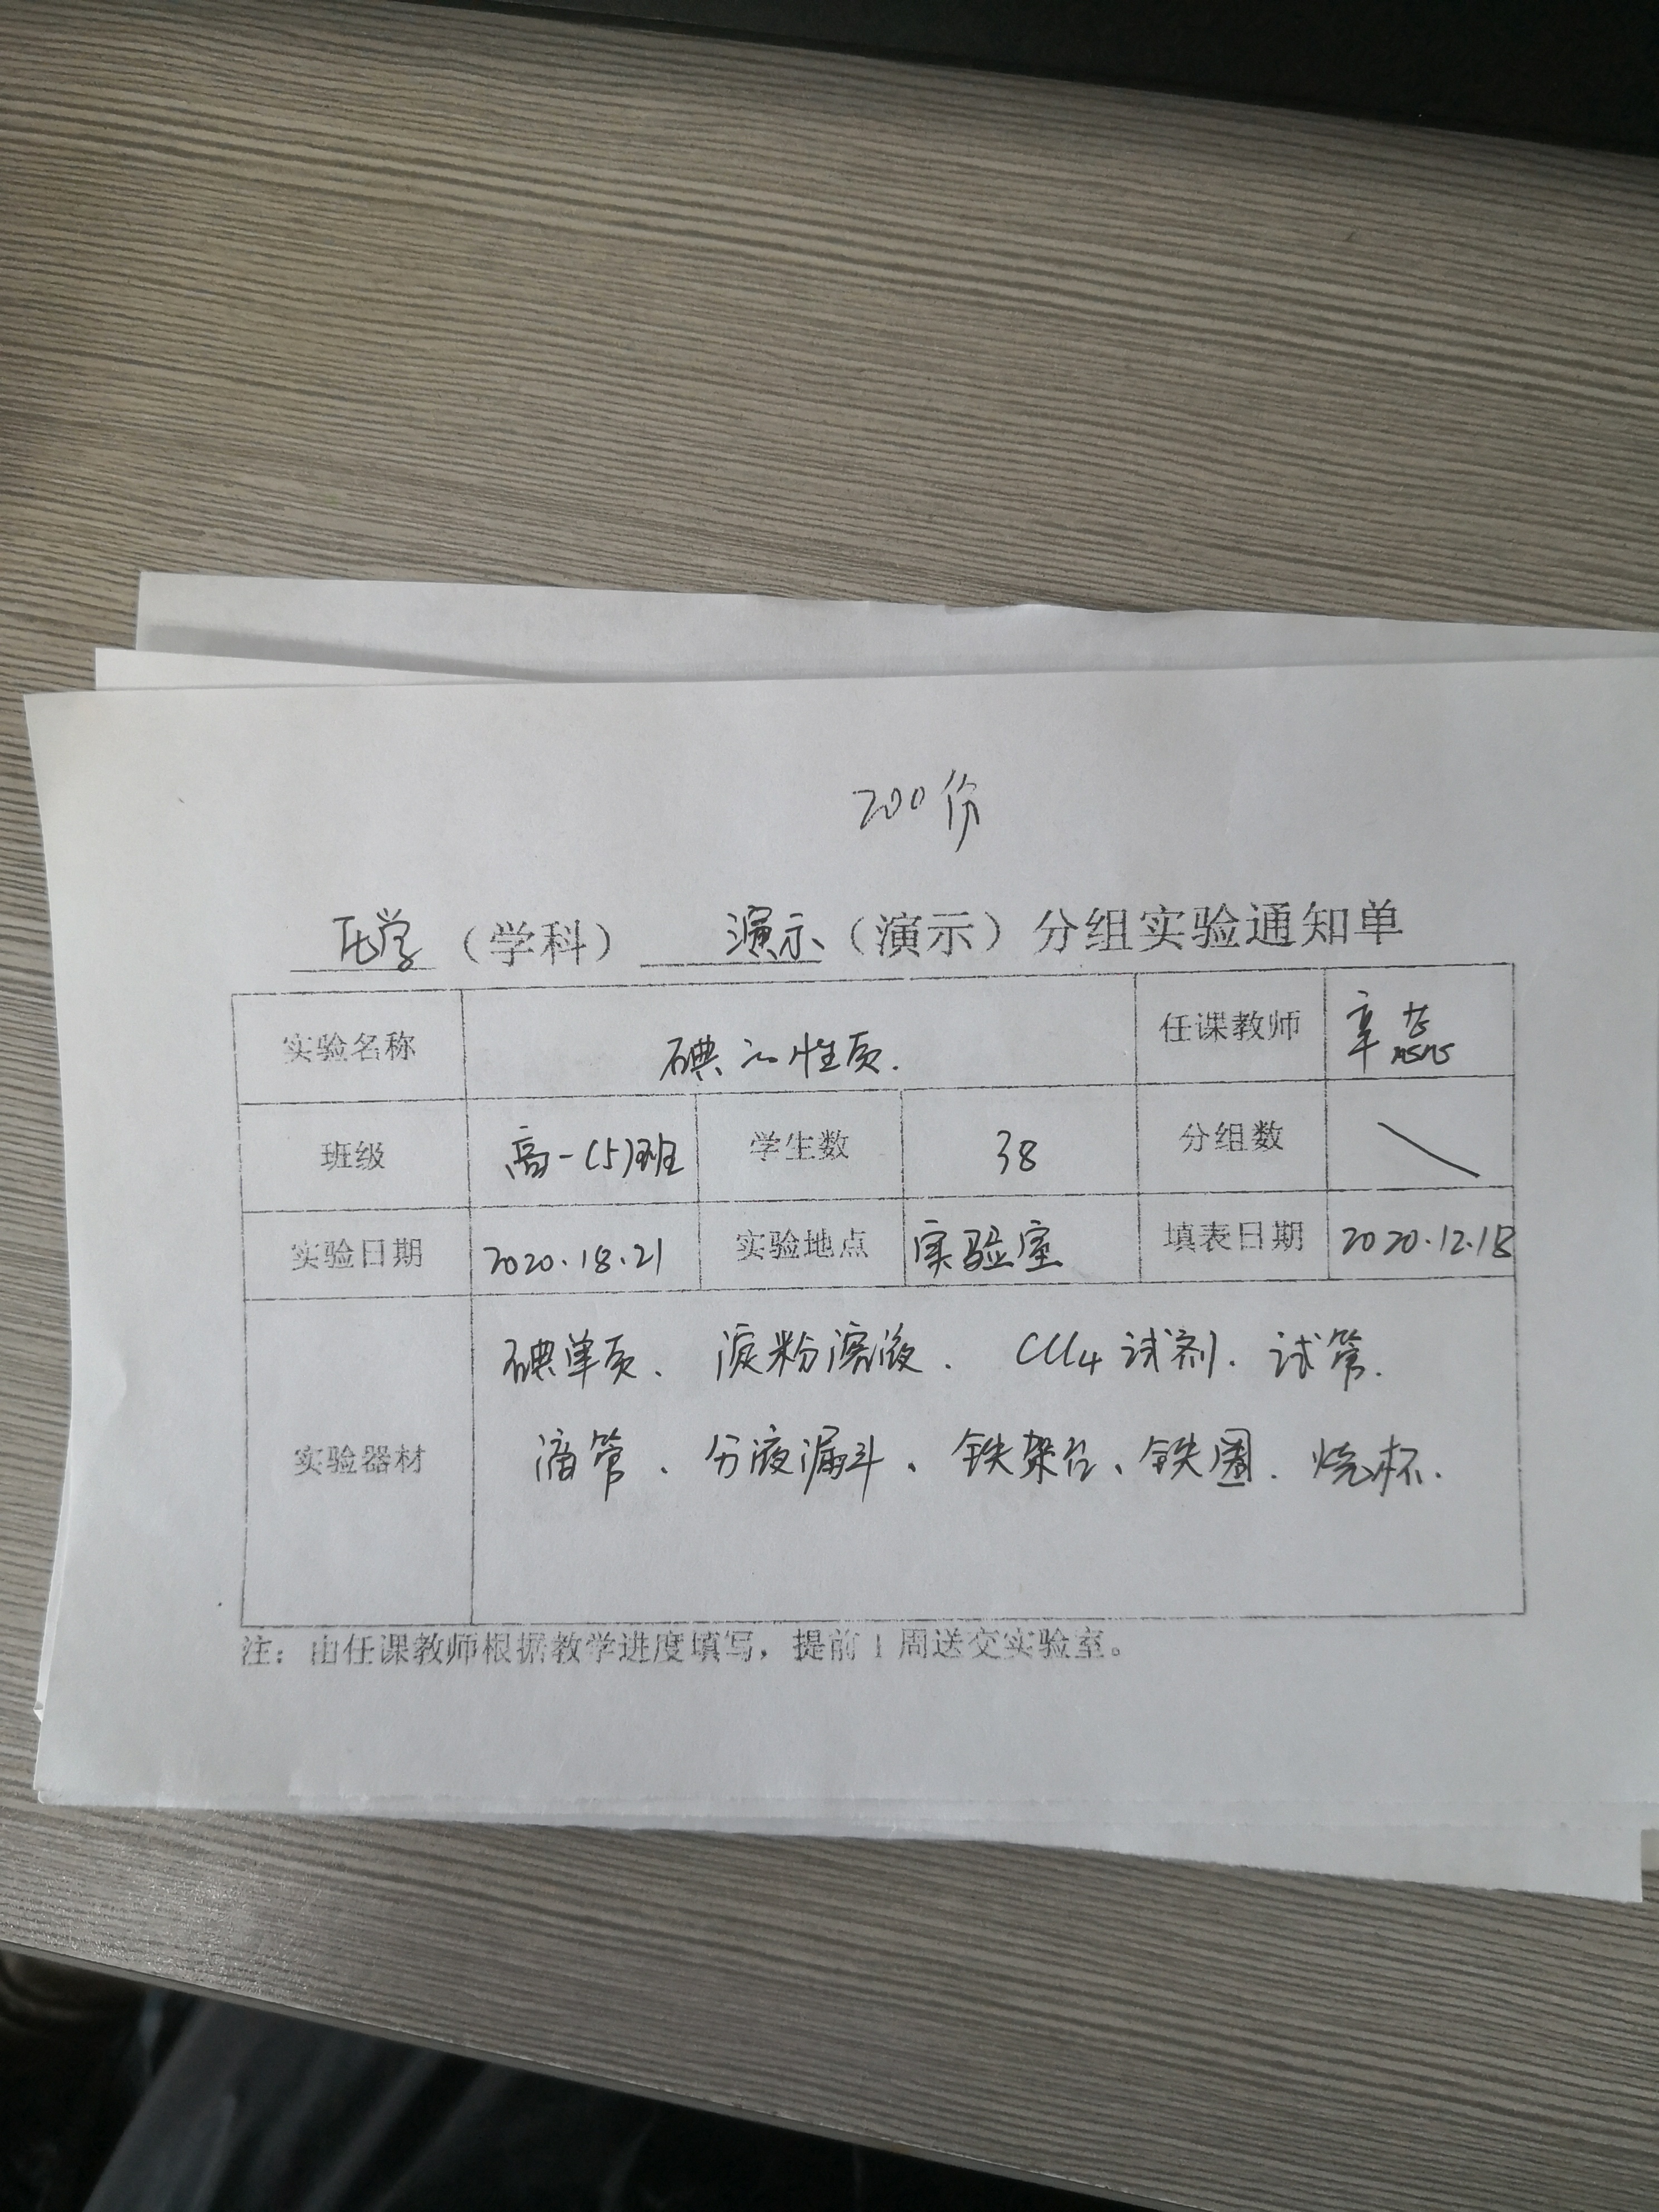 200份
化学（学科） 演示（演示）分组实验通知单
实验名称 碘的性质. 任课教师 辛蕊
班级 高一(5)班 学生数 38 分组数 \
实验日期 2020.18.21 实验地点 实验室 填表日期 2020.12.18
碘单质、淀粉溶液. CCl4试剂. 试管.
实验器材 滴管、分液漏斗、铁架台、铁圈. 烧杯.
注：由任课教师根据教学进度填写，提前1周送交实验室。